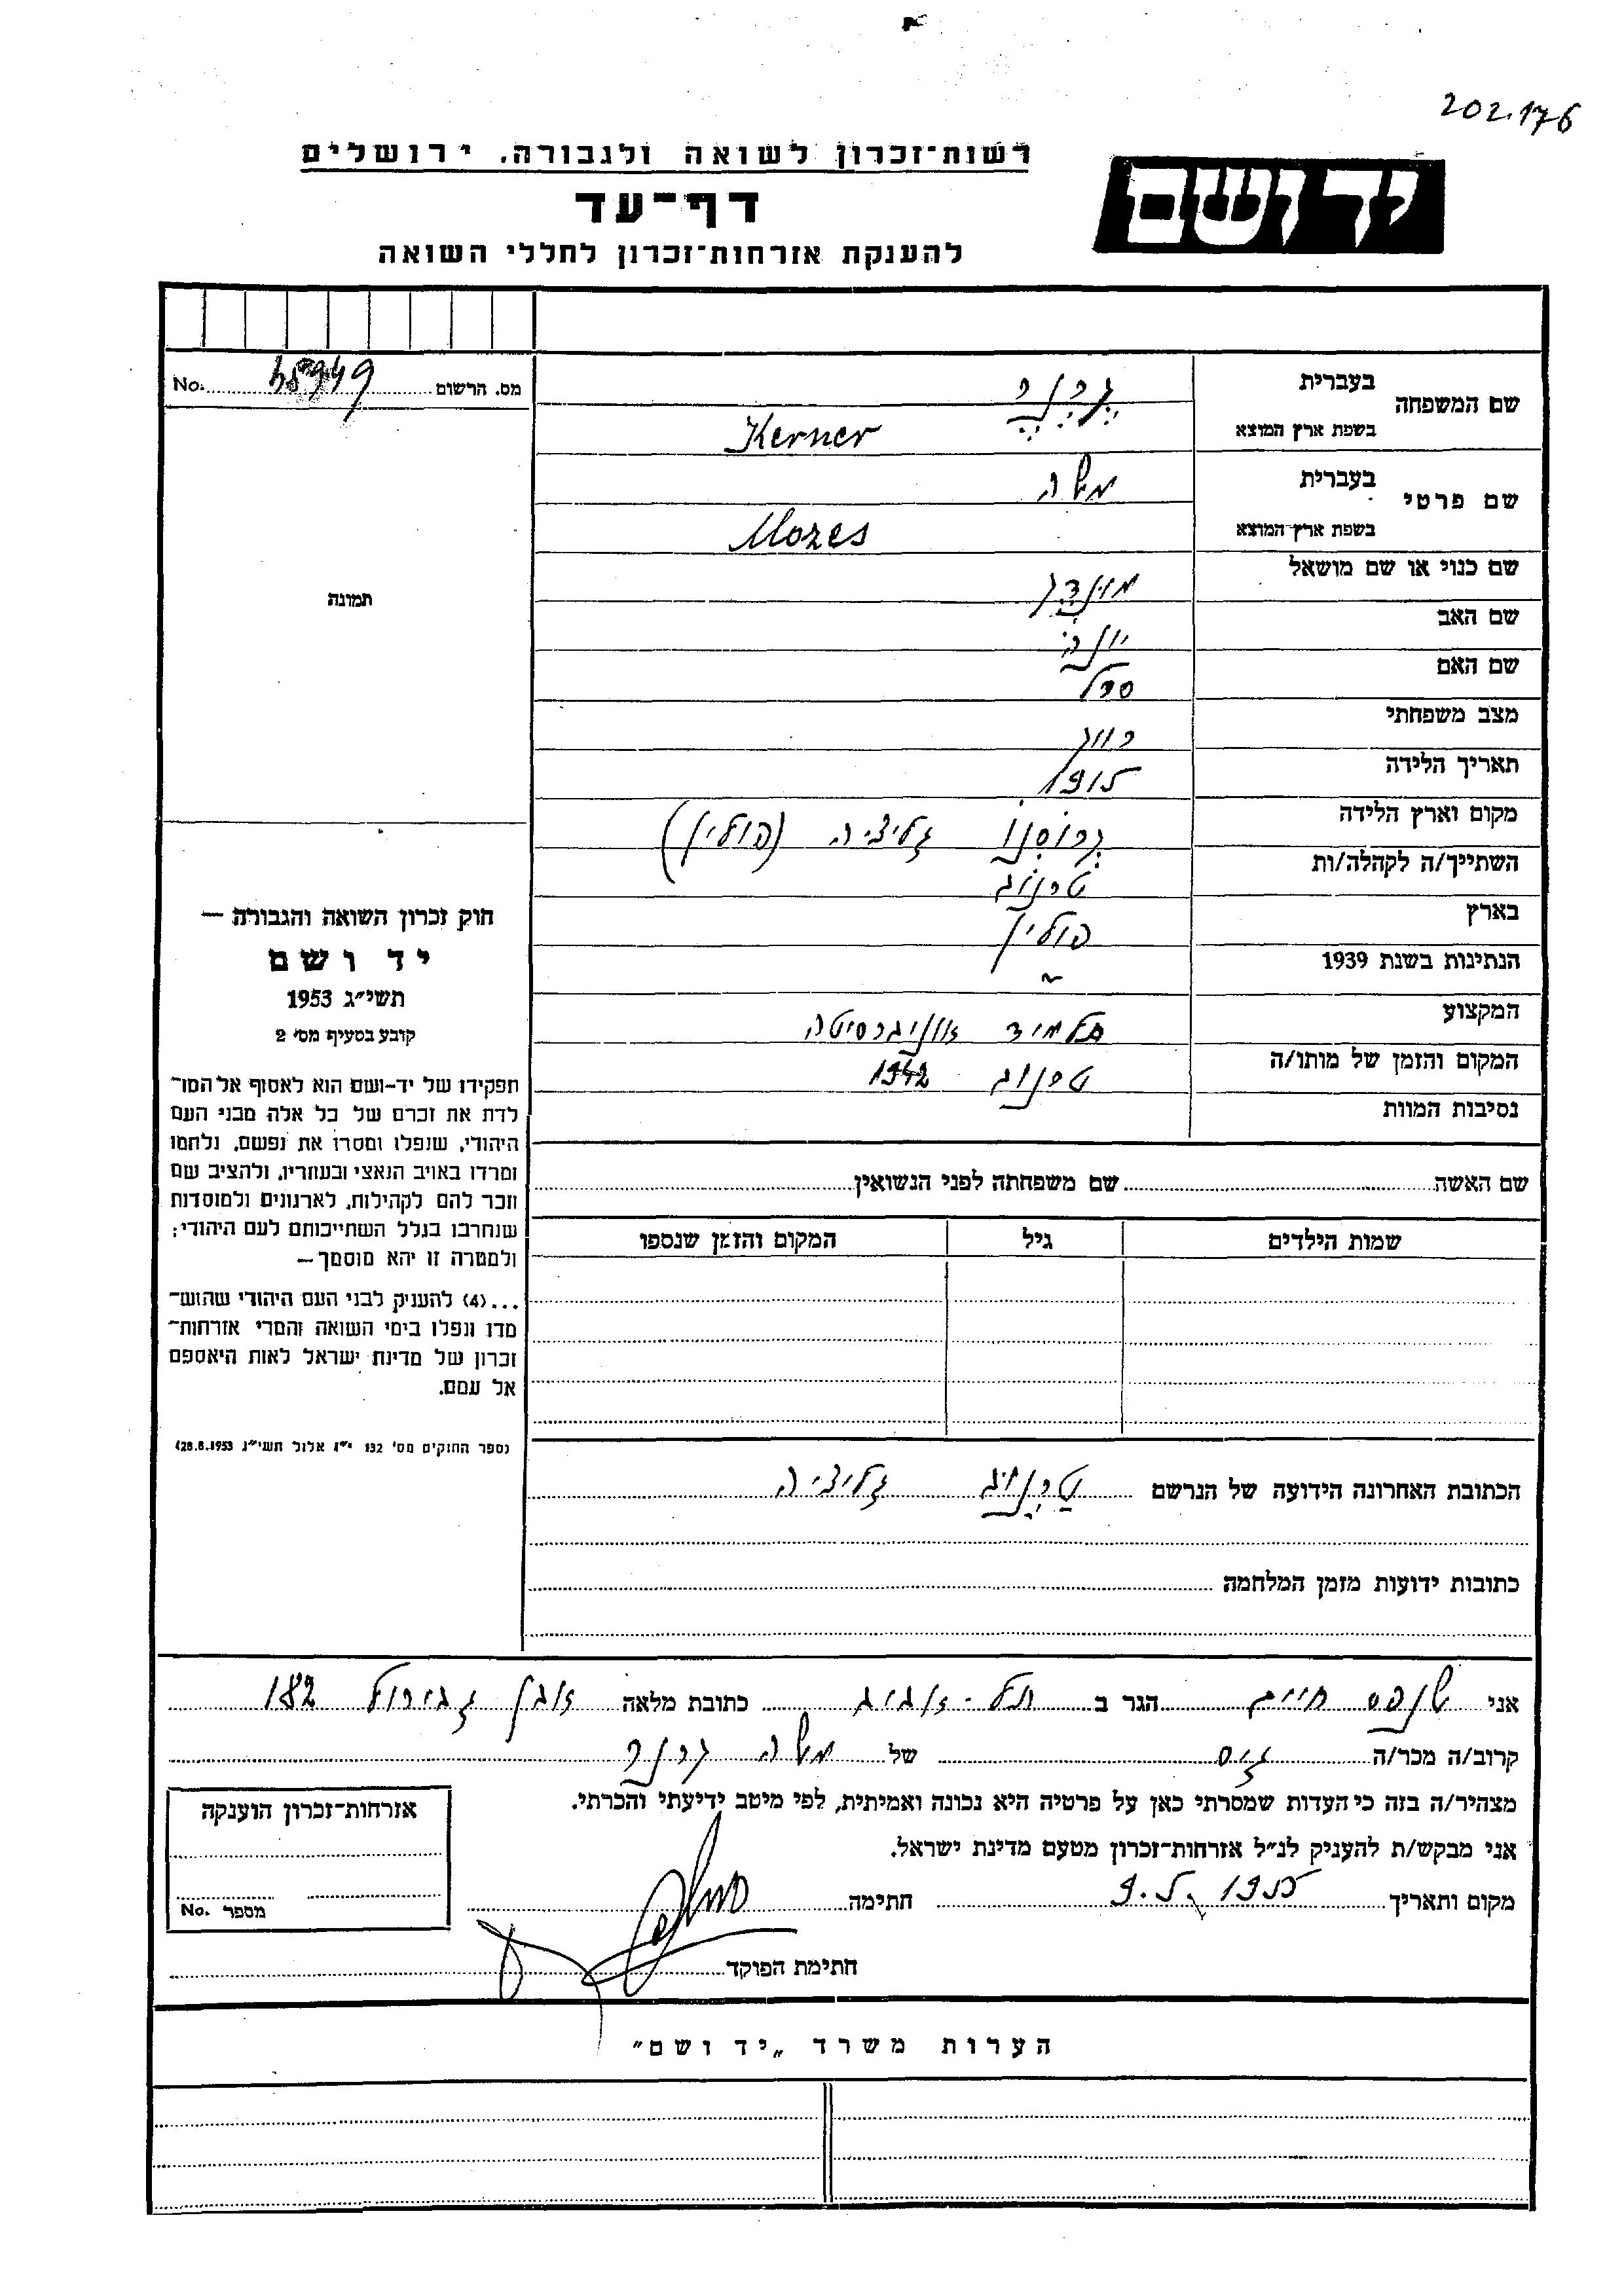 202.176
רשות־זכרון לשואה ולגבורה. ירושלים
יד ושם
דף־עד
להענקת אזרחות־זכרון לחללי השואה
שם המשפחה בעברית קרנר
בשפת ארץ המוצא Kerner
מס. הרשום No.
שם פרטי בעברית משה
בשפת ארץ המוצא Mozes
שם כנוי או שם מושאל מונדק
תמונה
שם האב יונה
שם האם
מצב משפחתי רווק
תאריך הלידה 1915
מקום וארץ הלידה קרוסנו גליציה (פולין)
השתייך/ה לקהלה/ות טרנוב
בארץ פולין
הנתינות בשנת 1939 ~
המקצוע תלמיד אוניברסיטה
המקום והזמן של מותו/ה טרנוב 1942
נסיבות המוות
חוק זכרון השואה והגבורה —
יד ושם
תשי״ג 1953
קובע בסעיף מס׳ 2
תפקידו של יד-ושם הוא לאסוף אל המו־
לדת את זכרם של כל אלה מבני העם
היהודי, שנפלו ומסרו את נפשם, נלחמו
ומרדו באויב הנאצי ובעוזריו, ולהציב שם
וזכר להם לקהילות, לארגונים ולמוסדות
שנחרבו בגלל השתייכותם לעם היהודי;
ולמטרה זו יהא מוסמך—
...(4) להעניק לבני העם היהודי שהוש־
מדו ונפלו בימי השואה והמרי אזרחות־
זכרון של מדינת ישראל לאות היאספם
אל עמם.
(ספר החוקים מס׳ 132 י״ז אלול תשי״ג 28.8.1953)
שם האשה שם משפחתה לפני הנשואין
שמות הילדים גיל המקום והזמן שנספו
הכתובת האחרונה הידועה של הנרשם טרנוב גליציה
כתובות ידועות מזמן המלחמה
אני חיים הגר ב תל-אביב כתובת מלאה אבן גבירול 182
קרוב/ה מכר/ה גיס של משה קרנר
מצהיר/ה בזה כי העדות שמסרתי כאן על פרטיה היא נכונה ואמיתית, לפי מיטב ידיעתי והכרתי.
אני מבקש/ת להעניק לנ״ל אזרחות־זכרון מטעם מדינת ישראל.
מקום ותאריך 9.5.1955 חתימה
חתימת הפוקד
אזרחות־זכרון הוענקה
מספר No.
הערות משרד „יד ושם״